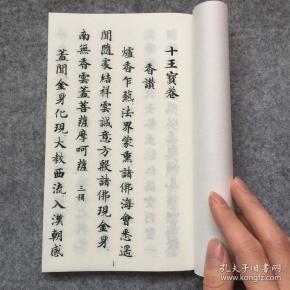 十王寳卷
香讃
爐香乍爇法界蒙熏諸佛海會悉遥
聞隨處結祥雲誠意方殷諸佛現金身
南無香雲蓋菩薩摩呵薩 三稱
蓋聞金身化現大教西流入漢朝感
1
孔夫子旧书网